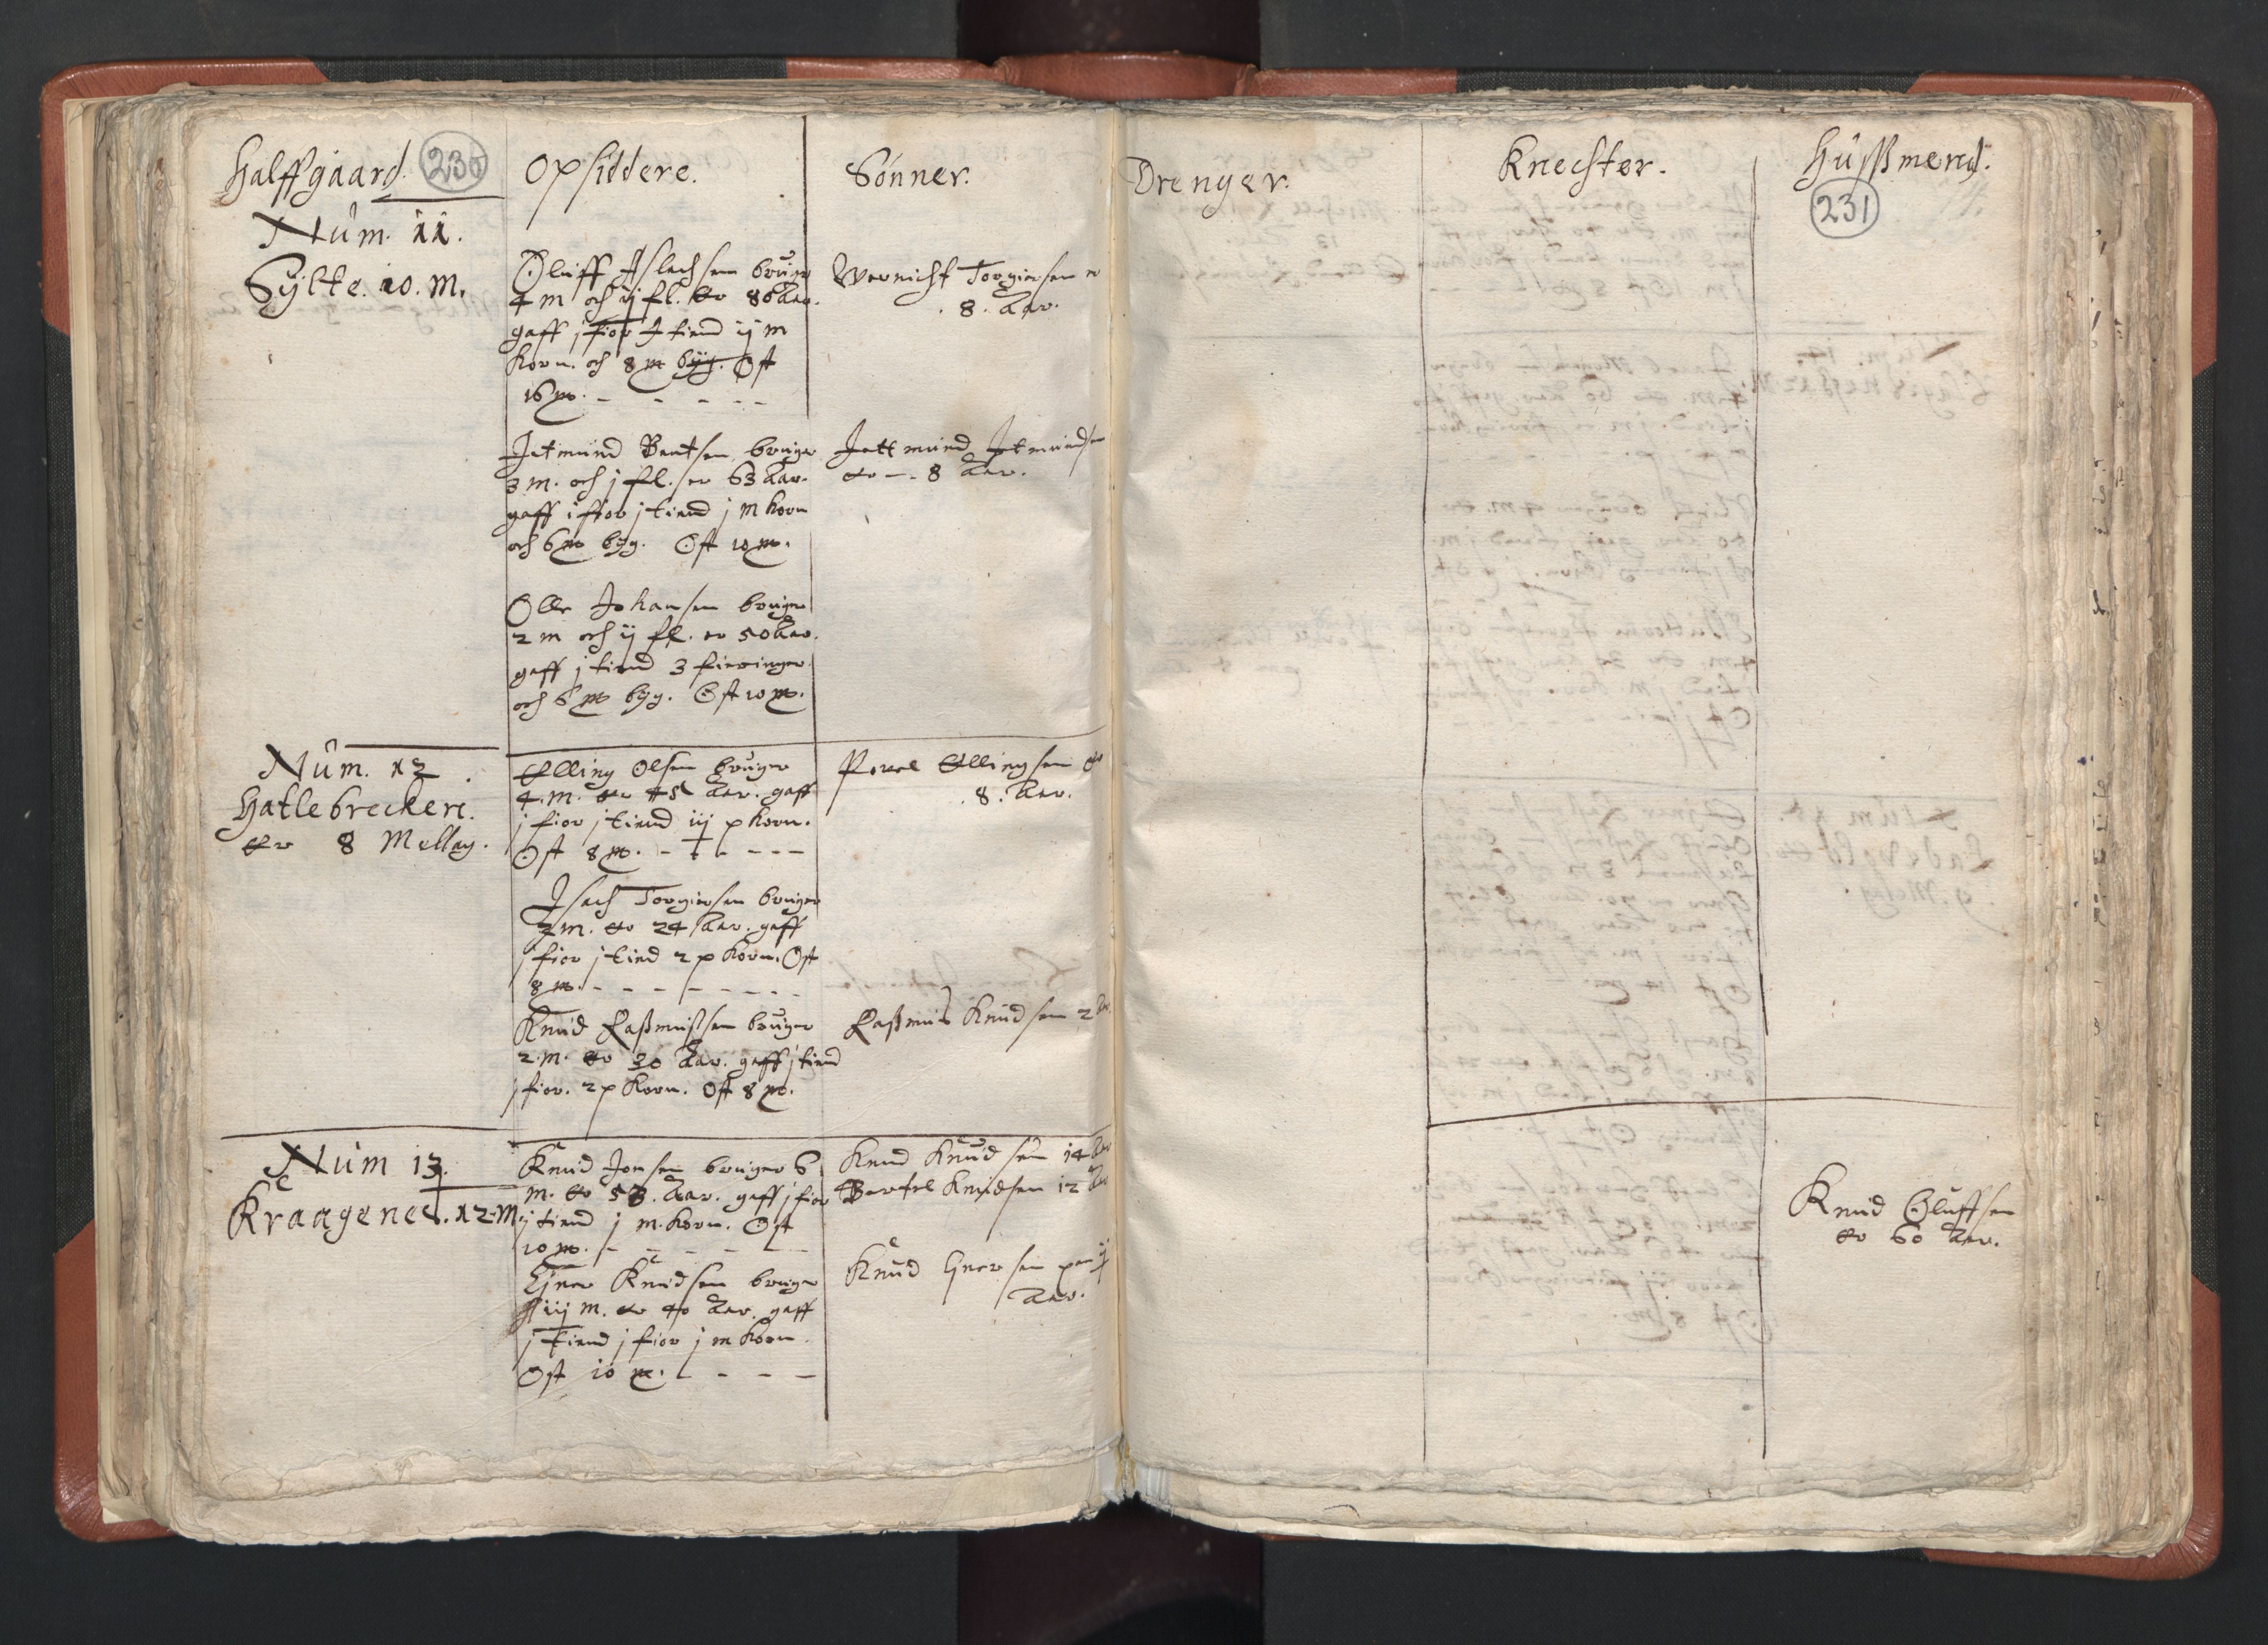 Halffgaard. 230
Opsiddere.
Sönner.
Num. 11.
Sylte. 10. M.
Oluff Islachsen bruger
4 m och ij fl. er 80 Aar.
gaff j fior J tiend ij m
Korn. och 8 m byg. Ost
16 m. - - - - -
Wernicht Torgiersen er
. 8. Aar.
Jetmund Bentsen bruger
3 m. och j fl. er 63 Aar.
gaff i fior j tiend j m korn
och 6 m byg. Ost 10 m.
Jettmund Jetmundsen
er - . 8 Aar.
Olle Johansen bruger
2 m och ij fl. er 50 Aar.
gaff j tiend 3 fieringer
och 6 m byg. Ost 10 m.
Num. 12.
Hatlebrecken.
er 8 Mellag.
Elling Olsen bruger
4. m. er 45 Aar. gaff
j fior j tiend iij p korn.
Ost 8 m. - - - - -
Povel Ellingsen er
. 8. Aar.
Isach Torgiersen bruger
2 m. er 24 Aar. gaff
j fior j tiend 2 p korn. Ost
8 m. - - - - - - -
Knud Rasmussen bruger
2. m. er 30 Aar. gaff j tiend
j fior. 2 p korn. Ost 8 m.
Rasmus Knudsen 2 Aar
Num 13.
Kraagenes. 12. M.
Knud Jonsen bruger 6
m. er 53. Aar. gaff j fior
j tiend j m. korn. Ost
10 m. - - - - - -
Knud Knudsen 14 Aar
Bertel Knudsen 12 Aar
Einer Knudsen bruger
iij m. er 40 Aar. gaff
j tiend j fior j m korn.
Ost 10 m. - - - -
Knud Einersen
Aar.
Drenger.
Knechter.
Hussmend.
231
Knud Oluffsen
er 60 Aar.